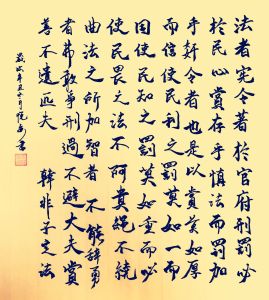 法者宪令著於官府刑罰必
於民心賞存乎慎法而罰加
乎奸令者也是以賞莫如厚
而信使民利之罰莫如一而
固使民知之罰莫如重而必
使民畏之法不阿貴繩不撓
曲法之所加智者不能辞勇
者弗敢争刑過不避大夫賞
善不遺匹夫 韓非子定法